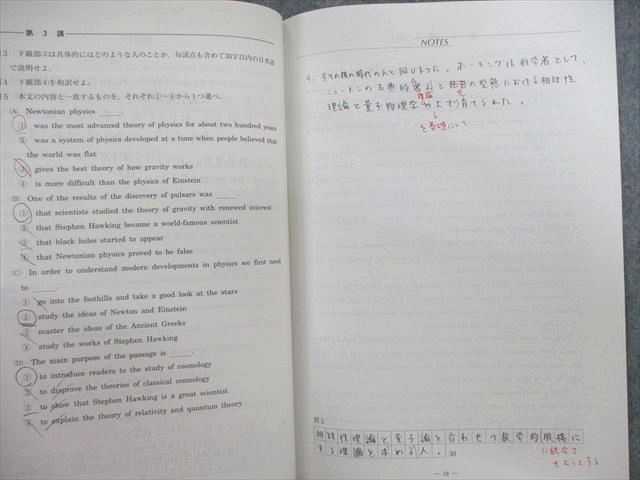 第 3 講
3 下線部(3)は具体的にはどのような人のことか,句読点も含めて30字以内の日本語
で説明せよ。
4 下線部(4)を和訳せよ。
5 本文の内容と一致するものを,それぞれ①~④から1つ選べ。
(A) Newtonian physics ____.
① was the most advanced theory of physics for about two hundred years
② was a system of physics developed at a time when people believed that
the world was flat
③ gives the best theory of how gravity works
④ is more difficult than the physics of Einstein
(B) One of the results of the discovery of pulsars was ____.
① that scientists studied the theory of gravity with renewed interest
② that Stephen Hawking became a world-famous scientist
③ that black holes started to appear
④ that Newtonian physics proved to be false
(C) In order to understand modern developments in physics we first need
to ____.
① go into the foothills and take a good look at the stars
② study the ideas of Newton and Einstein
③ master the ideas of the Ancient Greeks
④ study the works of Stephen Hawking
(D) The main purpose of the passage is ____.
① to introduce readers to the study of cosmology
② to disprove the theories of classical cosmology
③ to show that Stephen Hawking is a great scientist
④ to explain the theory of relativity and quantum theory
NOTES
4. 全ての彼の時代の人と同じように、ホーキングは科学者として、
ニュートンの古典的
の型態における相対性
理論
理論と量子物理学の上で育てられた。
を基礎にして
問3
相対性理論と量子論と合わせて数学的規模に
する理論を求める人。
30
— 18 —